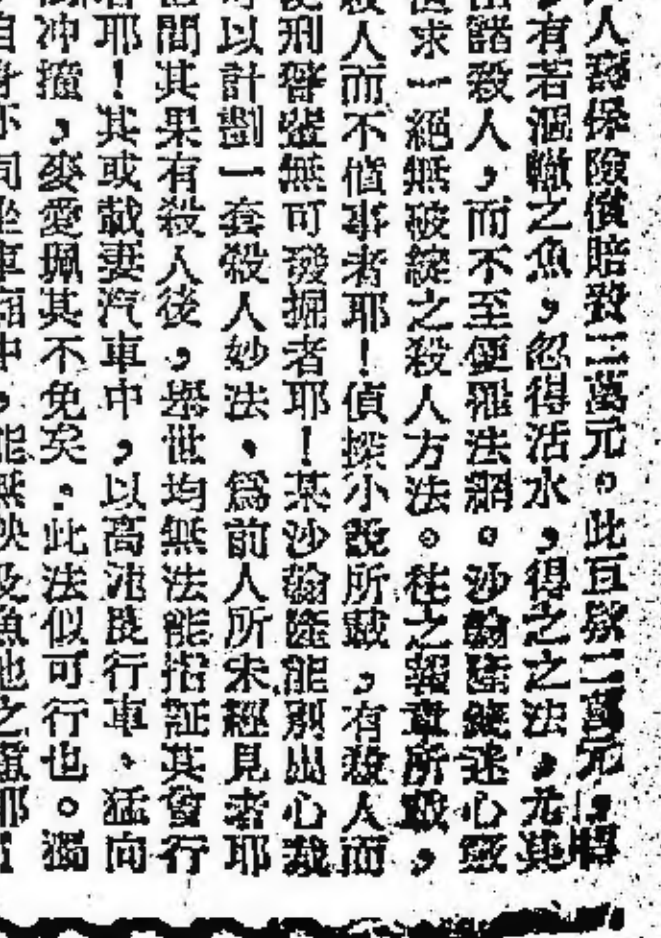 人壽保險償賠致三萬元。此巨欵二萬元，時
有若涸轍之魚，忽得活水，得之之法，尤其
諸殺人，而不至便罹法網。沙翰隆縱迷心竅
求一絕無破綻之殺人方法。往之報章所載，
人而不僨事者耶！偵探小說所載，有殺人而
刑督壂無可發掘者耶！某沙翰隆能別出心裁
以計劃一套殺人妙法、爲前人所未經見者耶
間其果有殺人後，舉世均無法能指証其曾行
者耶！其或載妻汽車中，以高速度行車、猛向
冲撞，麥愛珮其不免矣。此法似可行也。獨
自身亦同坐車廂中，能無殃及魚池之虞耶